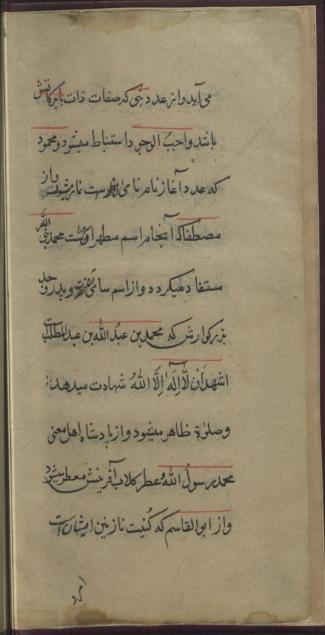 می‌آید و از عدد نبی که صفات ذات بابرکاتش
باشد واجب الوجود استنباط میشود و محمود
که عدد آغاز نام نامی اوست نماز میشود و از
مصطفا که آنجام اسم مطهر اوست محمد نبی الله
مستفاد میکردد و از اسم سامی و پدر و جد
بزرکوارش که محمد بن عبد الله بن عبد المطلب است
اشهد ان لا اله الا الله شهادت میدهد
وصلوة ظاهر میشود و از یاد شاه اهل معنی
محمد رسول الله و عطر کلاب آفرینش معطر میشود
و از ابو القاسم که کنیت نازنین ایشان است